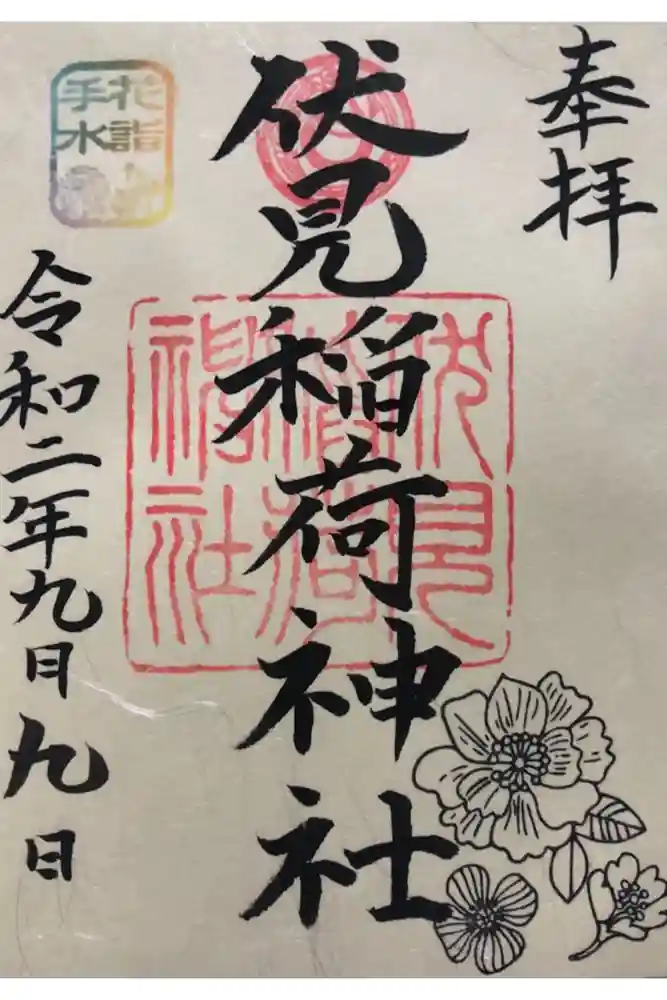 奉拝
伏見稲荷神社
伏見
稲荷
神社
花詣
手水
令和二年九日九日